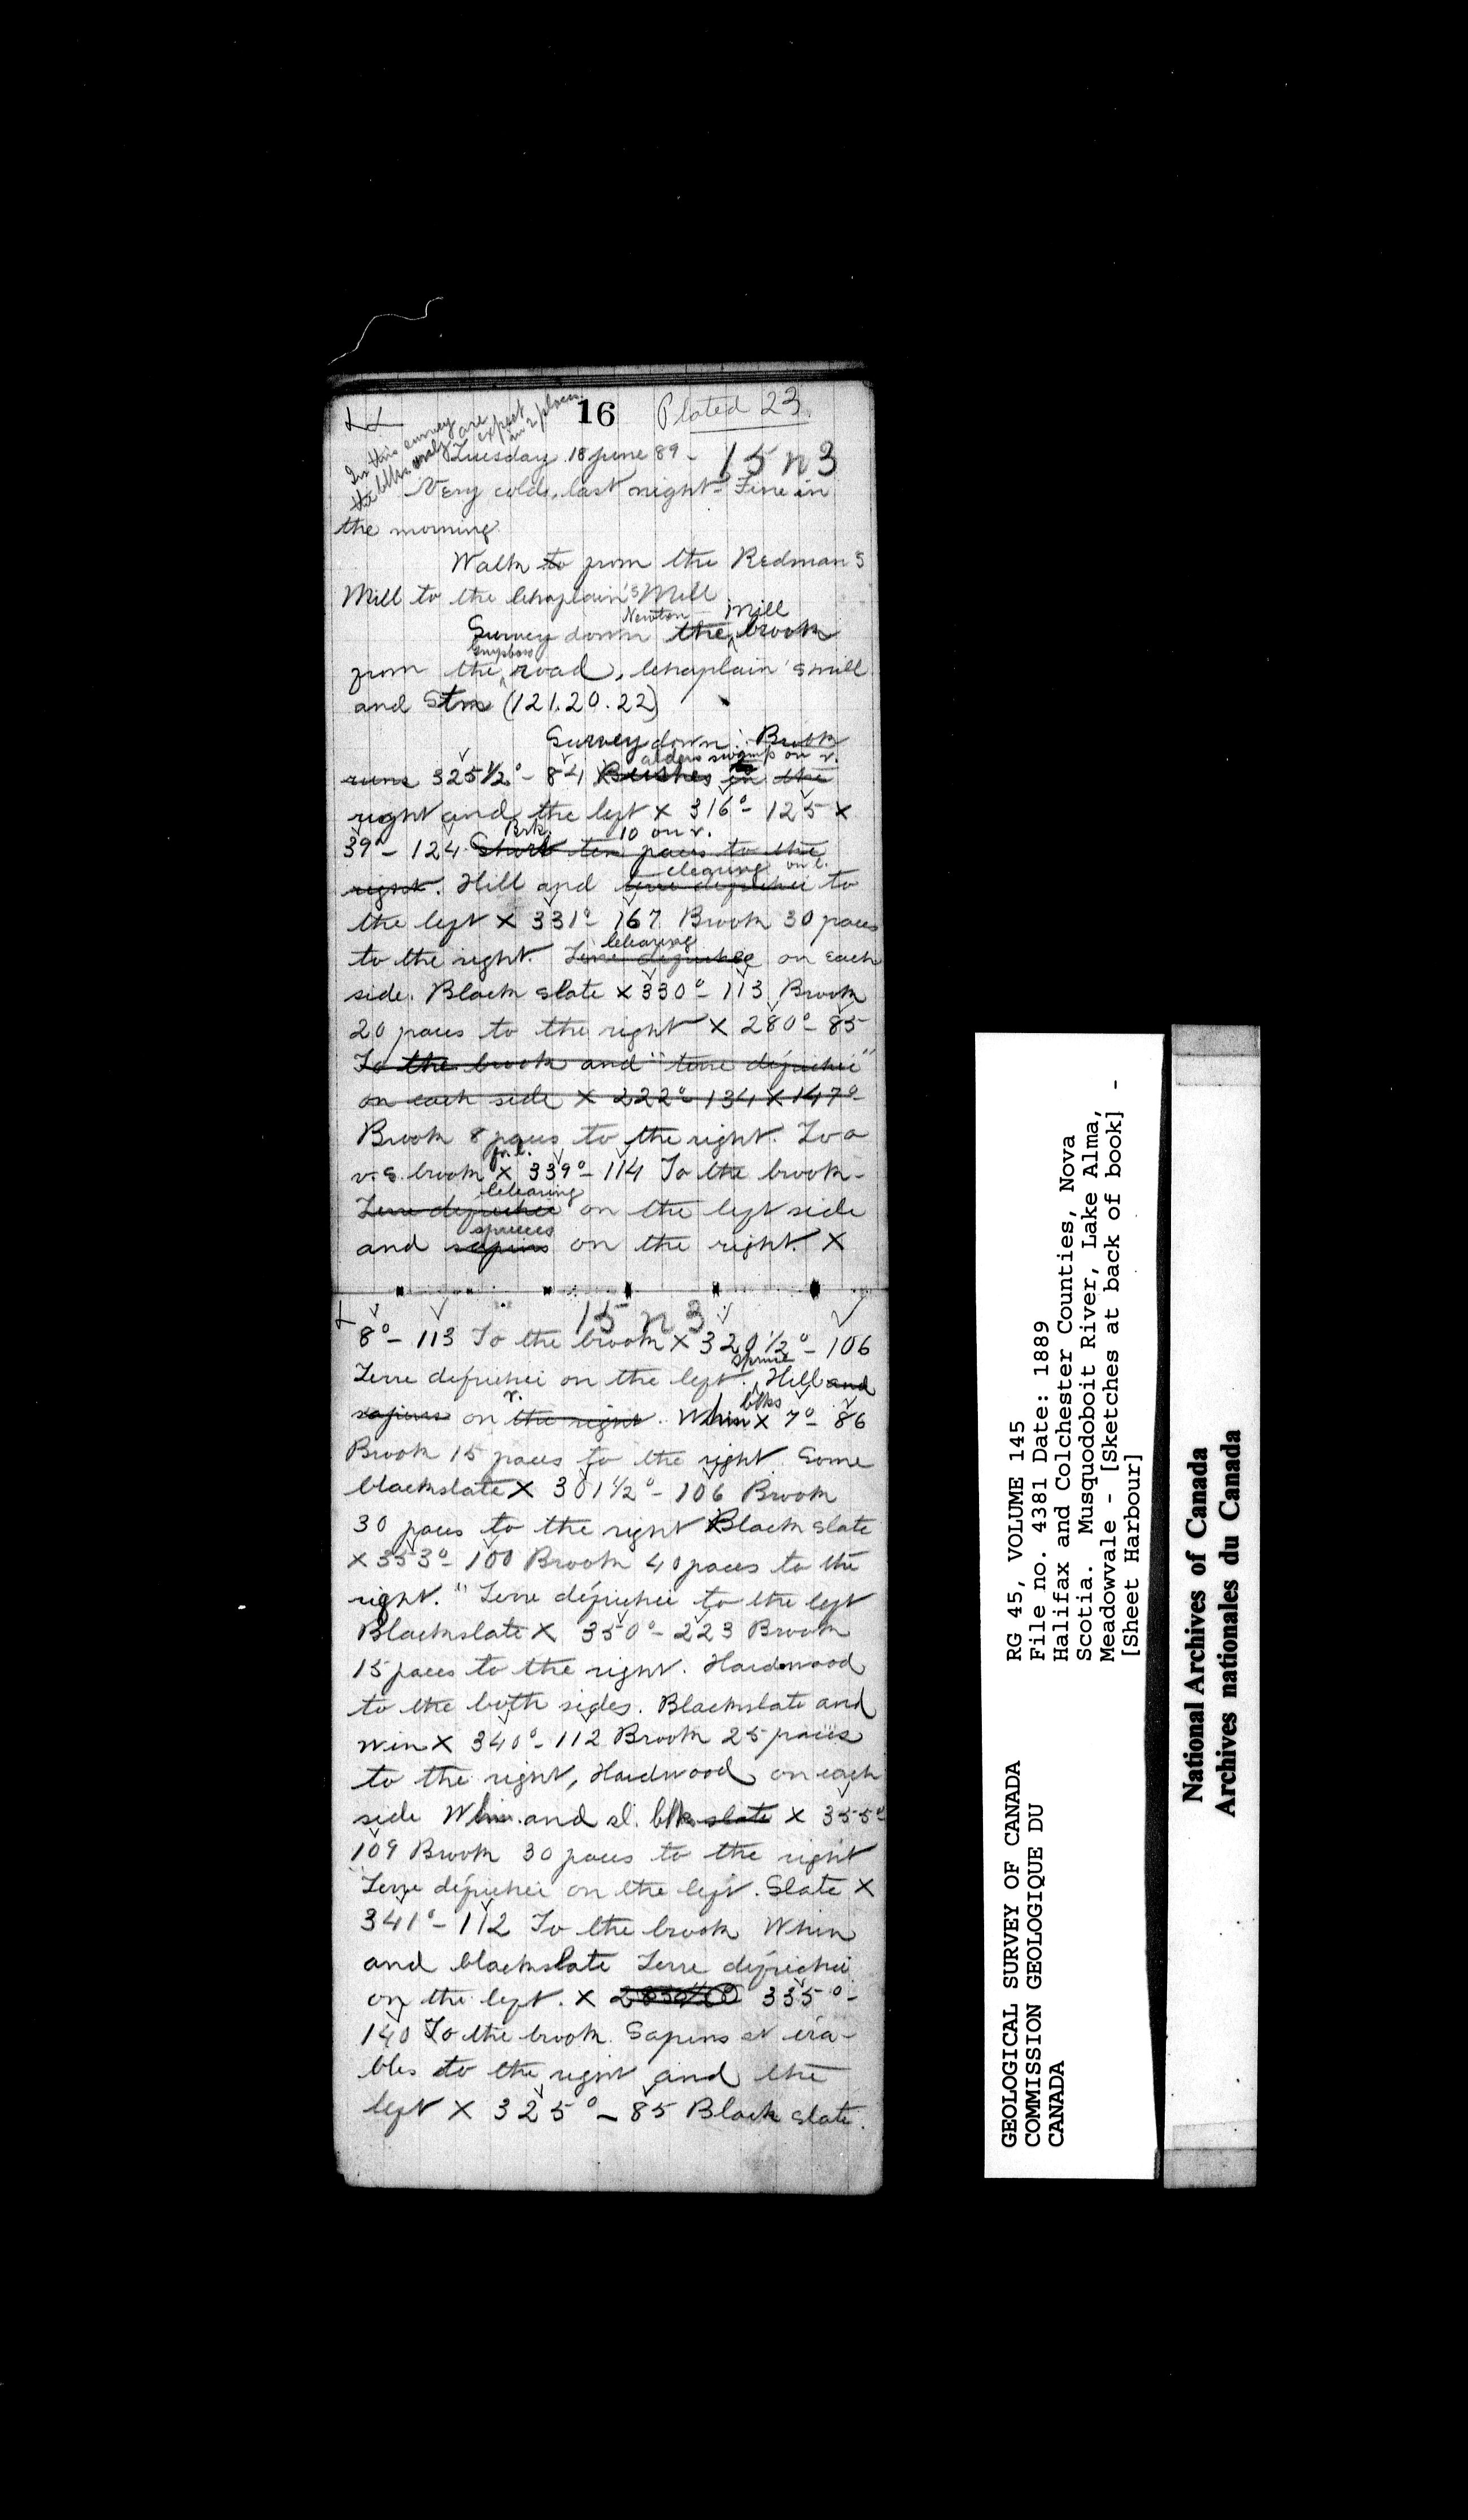 16 Plated 23.
In this survey
the blks only are
expect
in 2 places
Tuesday 18 June 89 - 15 n 3
Very cold, last night - Fine in
the morning
Walk to from the Redman's
Mill to the Chaplain's Mill
Newton mill
Survey down the brook
Guysboro
from the road, Chaplain's mill
and Stm (121.20.22)
Survey down. Brook
alders swamp on r.
runs 325 1/2° - 84 Bushes in the
right and the left x 316° - 125 x
Brk. 10 on r.
39° - 124 Short ten paces to the
clearing on l.
right. Hill and terre defrichee to
the left x 331° - 167 Brook 30 paces
Clearing
to the right. Terre defrichee on each
side. Black slate x 330° - 113 Brook
20 paces to the right x 280° - 85
To the brook and "terre défrichée"
on each side x 222° - 134 x 147° -
Brook 8 paces to the right. To a
fr. l.
v.s. brook x 339° - 114 To the brook -
Clearing
Terre defrichee on the left side
spruces
and sapins on the right. x
15 n 3
8° - 113 To the brook x 320 1/2° - 106
spruce
Terre défrichée on the left. Hill and
r. blks
sapins on the right. Whin x 7° - 86
Brook 15 paces to the right. Some
blackslate x 301 1/2° - 106 Brook
30 paces to the right Black slate
x 353° - 100 Brook 40 paces to the
right. "Terre défrichée to the left
Blackslate x 350° - 223 Brook
15 paces to the right. Hardwood
to the both sides. Blackslate and
win x 340° - 112 Brook 25 paces
to the right, Hardwood on each
side Whin. and sl. blk slate x 355°
109 Brook 30 paces to the right
Terre défrichée on the left. Slate x
341° - 112 To the brook Whin
and blackslate Terre défrichée
on the left. x 335° -
140 To the brook. Sapins et éra-
bles to the right and the
left x 325° - 85 Black slate.
GEOLOGICAL SURVEY OF CANADA
COMMISSION GEOLOGIQUE DU
CANADA
RG 45, VOLUME 145
File no. 4381 Date: 1889
Halifax and Colchester Counties, Nova
Scotia. Musquodoboit River, Lake Alma,
Meadowvale - [Sketches at back of book] -
[Sheet Harbour]
National Archives of Canada
Archives nationales du Canada